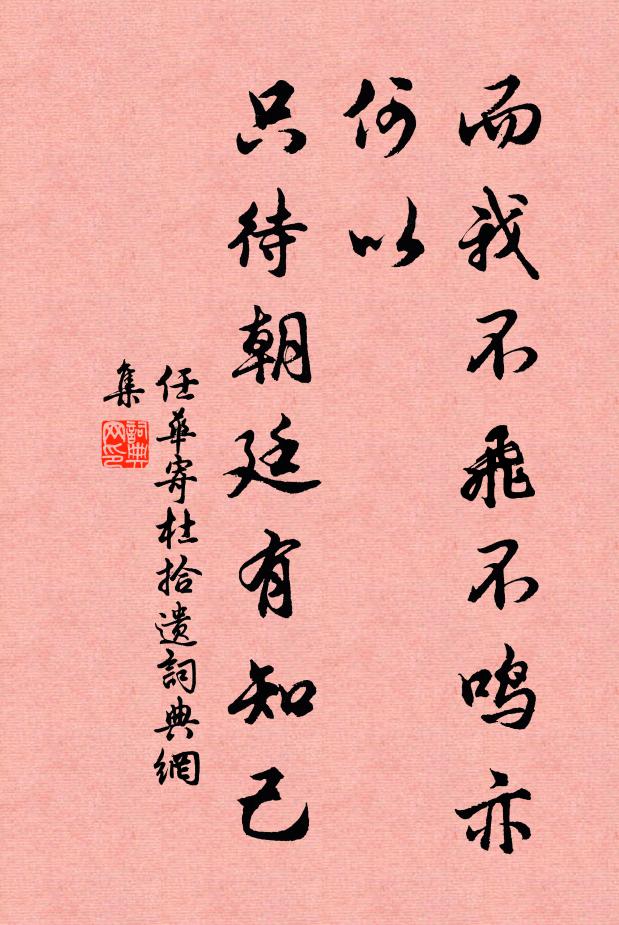 而我不飛不鸣亦
何以
只待朝廷有知己
任華寄杜拾遗詞典網
集
詞典
网印